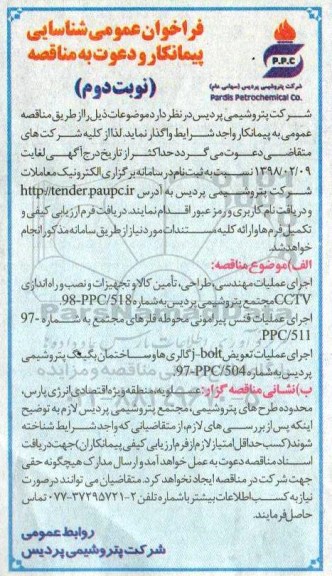 فراخوان عمومی شناسایی
پیمانکار و دعوت به مناقصه
(نوبت دوم)
P.P.C
شرکت پتروشیمی پردیس (سهامی عام)
Pardis Petrochemical Co.
شرکت پتروشیمی پردیس در نظر دارد موضوعات ذیل را از طریق مناقصه
عمومی به پیمانکار واجد شرایط واگذار نماید. لذا از کلیه شرکت های
متقاضی دعوت می گردد حداکثر از تاریخ درج آگهی لغایت
۱۳۹۸/۰۲/۰۹ نسبت به ثبت نام در سامانه برگزاری الکترونیک معاملات
شرکت پتروشیمی پردیس به آدرس http://tender.paupc.ir
و دریافت نام کاربری و رمز عبور اقدام نمایند. دریافت فرم ارزیابی کیفی و
تکمیل فرم ها و ارائه کلیه مستندات مورد نیاز از طریق سامانه مذکور انجام
خواهد شد.
الف) موضوع مناقصه:
اجرای عملیات مهندسی، طراحی، تأمین کالا و تجهیزات و نصب و راه اندازی
CCTV مجتمع پتروشیمی پردیس به شماره 98-PPC/518.
اجرای عملیات فنس پیرامونی محوطه فلرهای مجتمع به شماره 97-
PPC/511.
اجرای عملیات تعویض j-bolt گالری ها و ساختمان بگینگ پتروشیمی
پردیس به شماره 97-PPC/504.
ب) نشانی مناقصه گزار: عسلویه منطقه ویژه اقتصادی انرژی پارس،
محدوده طرح های پتروشیمی، مجتمع پتروشیمی پردیس لازم به توضیح
اینکه پس از بررسی های لازم، از متقاضیانی که واجد شرایط شناخته
شوند (کسب حداقل امتیاز لازم از فرم ارزیابی کیفی پیمانکاران) جهت دریافت
اسناد مناقصه دعوت به عمل خواهد آمد و ارسال مدارک هیچگونه حقی
جهت شرکت در مناقصه ایجاد نخواهد کرد. متقاضیان می توانند در صورت
نیاز به کسب اطلاعات بیشتر با شماره تلفن ۲-۳۷۲۹۵۷۲۱-۰۷۷ تماس
حاصل فرمایند.
روابط عمومی
شرکت پتروشیمی پردیس